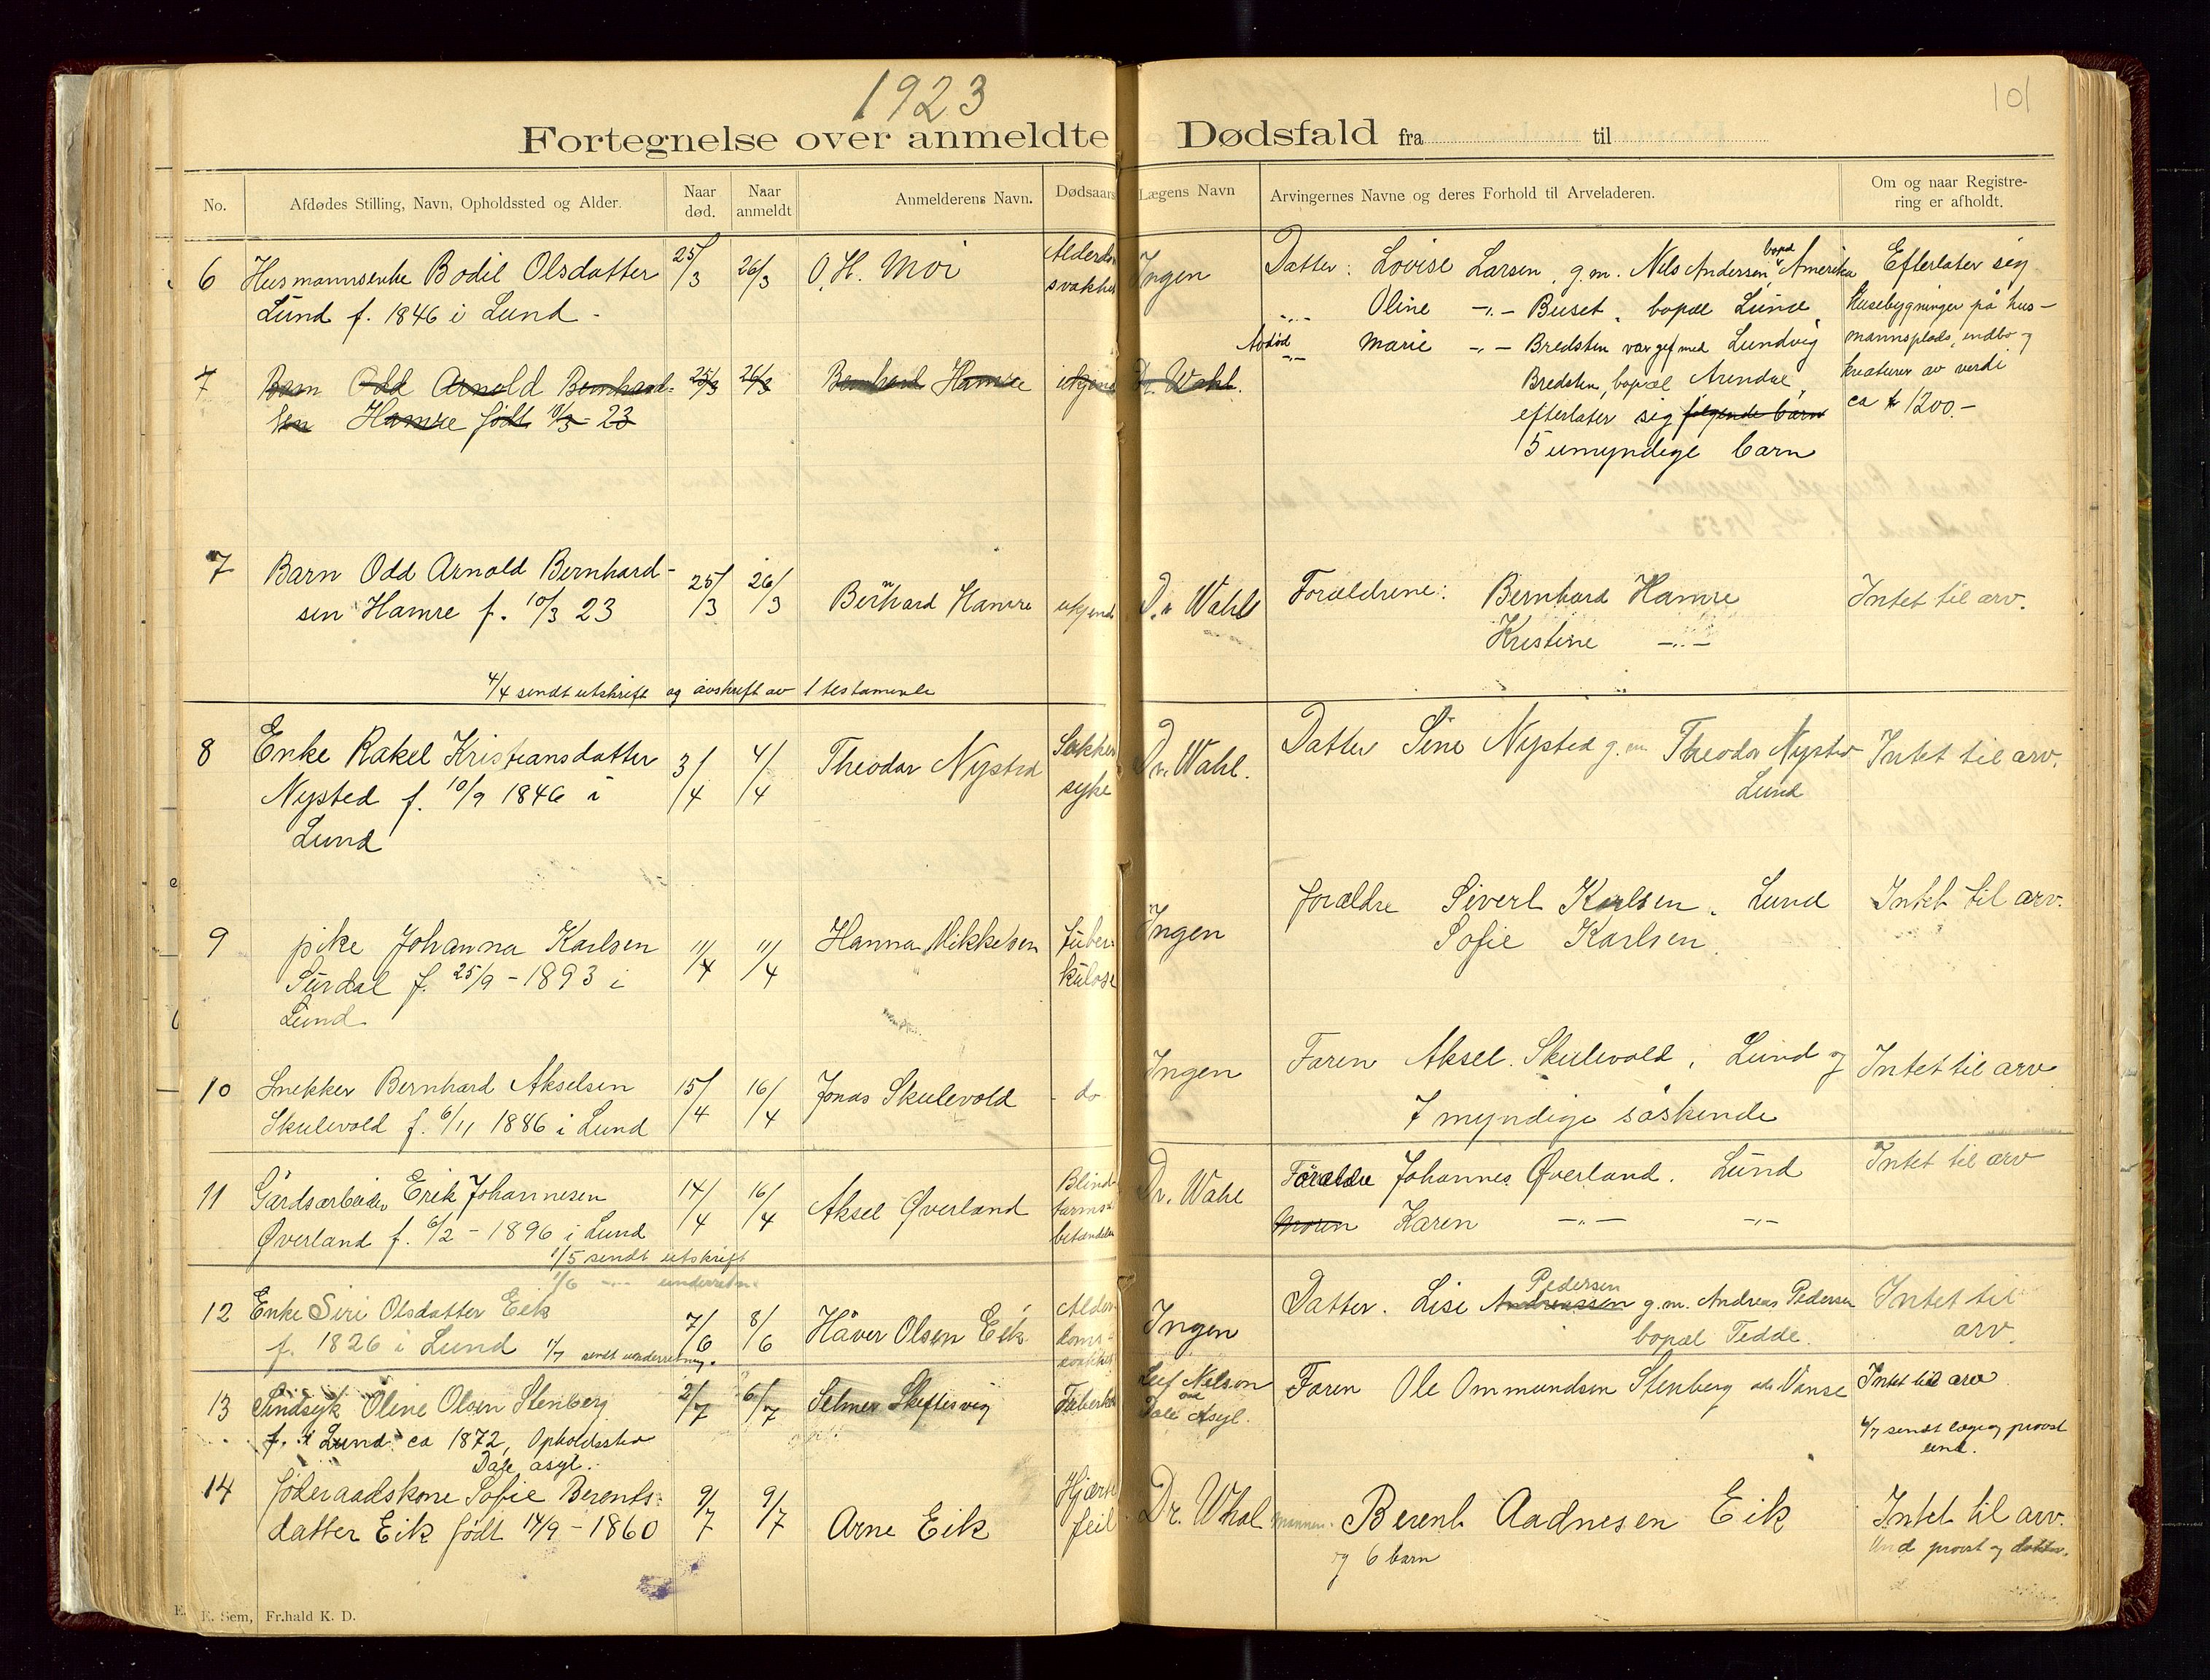 1923
101
Fortegnelse over anmeldte Dødsfald fra til
No.
Afdødes Stilling, Navn, Opholdssted og Alder.
Naar død.
Naar anmeldt
Anmelderens Navn.
Dødsaars
Lægens Navn
Arvingernes Navne og deres Forhold til Arveladeren.
Om og naar Registre-
ring er afholdt.
6 Husmannsenke Bodil Olsdatter 25/3 26/3 O. H. Moi Alderdo Ingen Datter: Lovise Larsen, g.m. Nils Andersen, bopæl Amerika Efterlater sig
Lund f. 1846 i Lund - svakhet -"- Oline -"- Buset, bopæl Lund, Husebygninger på hus-
Avdød -"- Marie -"- Bredsten var gift med Lundvig mannsplads, indbo og
7 Barn Odd Arnold Bernhard- 25/3 26/3 Bernhard Hamre ukjend Dr. Wahl. Bredsten, bopæl Arendal, kreaturer av verdi
sen Hamre født 10/3 - 23 efterlater sig følgende barn ca kr 1200.-
5 umyndige barn
7 Barn Odd Arnold Bernhard- 25/3 26/3 Bernhard Hamre ukjend Dr. Wahl Forældrene: Bernhard Hamre Intet til arv.
sen Hamre f. 10/3 23 Kristine -"-
4/4 sendt utskrift og avskrift av 1 testamente
8 Enke Rakel Kristiansdatter 3/4 4/4 Theodor Nysted Sukker Dr. Wahl. Datter Sine Nysted g.m. Theodor Nysted Intet til arv.
Nysted f. 10/9 1846 i syke Lund
Lund
9 pike Johanna Karlsen 11/4 11/4 Hanna Mikkelsen Tuber- Ingen forældre Sivert Karlsen, Lund Intet til arv.
Surdal f. 25/9 - 1893 i kulose Sofie Karlsen.
Lund
10 Snekker Bernhard Akselsen 15/4 16/4 Jonas Skulevold - do Ingen Faren Aksel Skulevold, Lund og Intet til arv
Skulevold f. 6/11 1886 i Lund 7 myndige søskende
11 Gårdsarbeider Erik Johannesen 14/4 16/4 Aksel Øverland Blind- Dr. Wahl Forældre Johannes Øverland. Lund Intet til arv
Øverland f. 6/2 - 1896 i Lund tarms- betændelse Moren Karen -"- -"-
1/5 sendt utskrift
1/6 -"- underretn.
12 Enke Siri Olsdatter Eik 7/6 8/6 Håver Olsen Eik Alder- Ingen Datter. Lise Andreassen Pedersen g.m. Andreas Pedersen Intet til
f. 1826 i Lund 1/7 sendt underretning. doms- svakhet bopæl Tedde. arv.
13 Sindsyk Oline Olsen Stenberg 2/7 6/7 Selmer Skeftesvig Tuberku Leif Nilson Faren Ole Ommundsen Stenberg Vanse Intet til arv
f. i Lund ca 1872, Opholdssted Dale Asyl. 6/7 sendt læge og provst
Dale asyl. und.
14 føderaadskone Sofie Berents- 9/7 9/7 Arne Eik Hjærte Dr. Whal mannen. Berent Aadnesen Eik Intet til arv.
datter Eik født 14/9 - 1860 feil og 6 barn Und provst og doktor.
E. Sem, Fr.hald K. D.